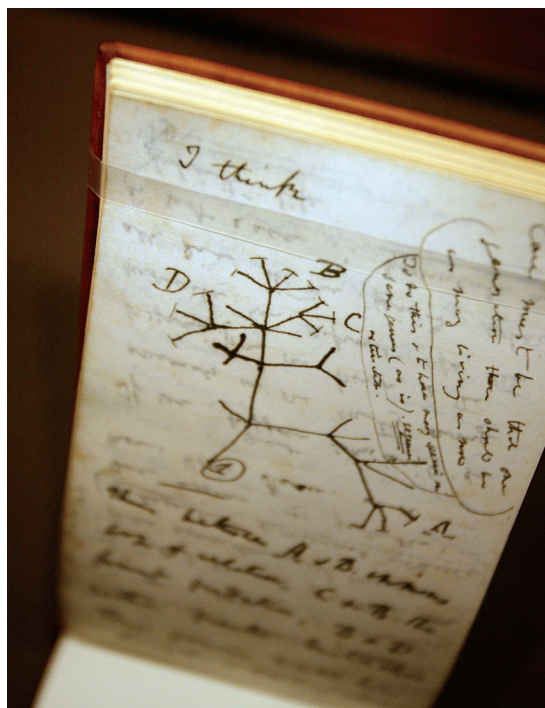 I think
B
D
C
A
1
Case must be that one
generation then should be
as many living as now
To do this & to have many species in
same genus (as is) requires
extinction.
Thus between A & B. immense
gap of relation. C & B. the
finest gradation, B & D
rather greater distinction